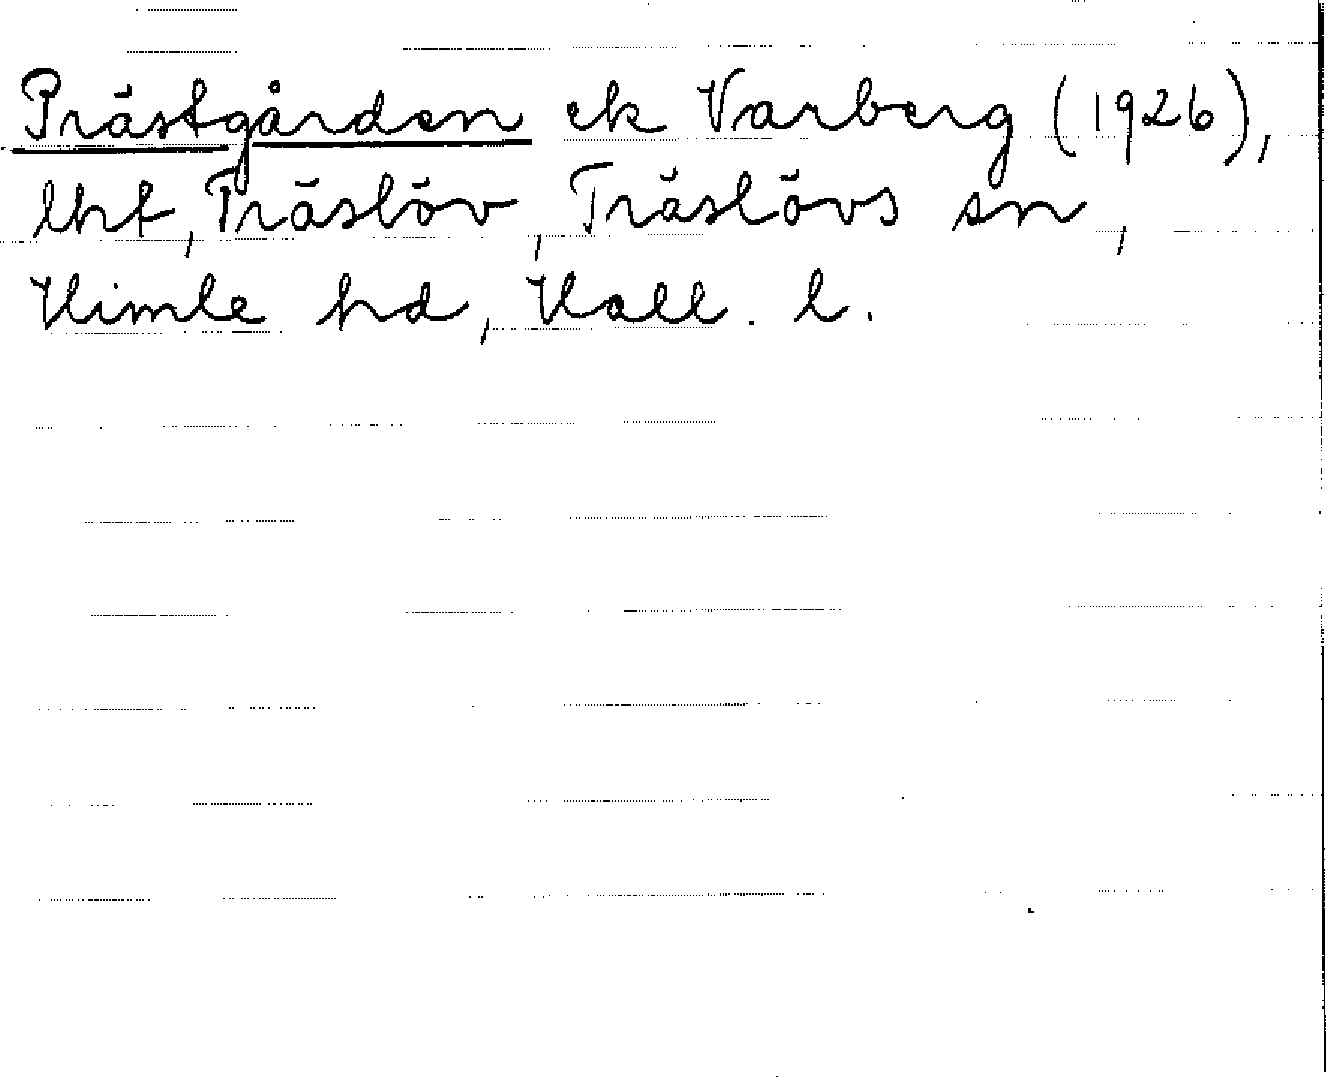 Prästgården ek Varberg (1926),
lht, Träslöv, Träslövs sn,
Himle hd, Hall. l.